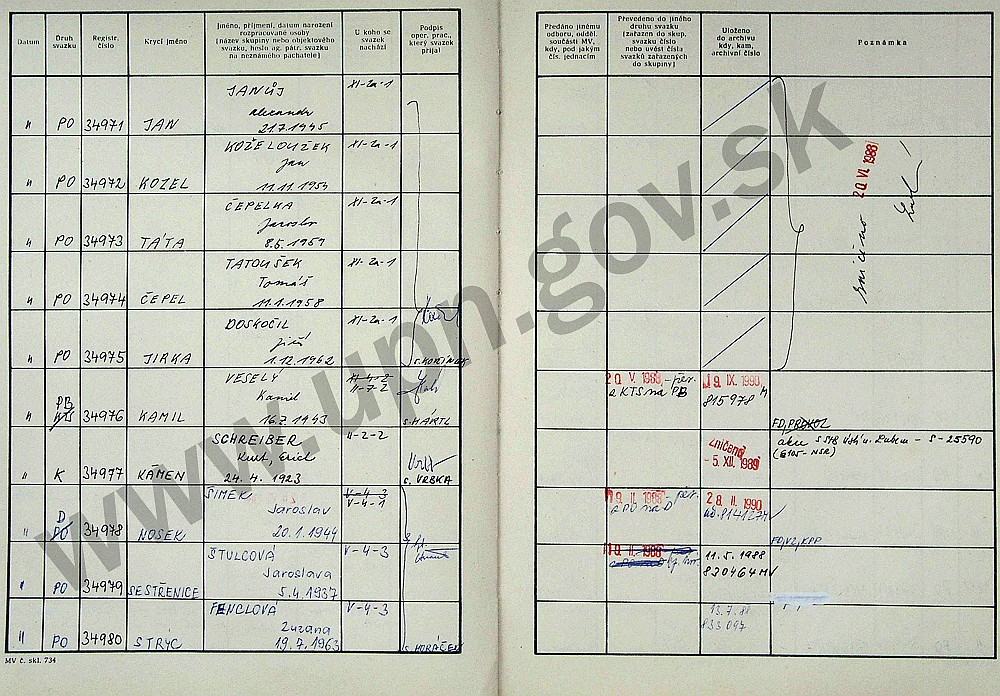 Datum
Druh svazku
Registr. číslo
Krycí jméno
Jméno, příjmení, datum narození
rozpracované osoby
(název skupiny nebo objektového
svazku, heslo ag. pátr. svazku
na neznámého pachatele)
U koho se svazek nachází
Podpis oper. prac., který svazek přijal
Předáno jinému
odboru, odděl.
součásti MV,
kdy, pod jakým
čís. jednacím
Převedeno do jiného
druhu svazku
(zařazen do skup.
svazku číslo
nebo uvést čísla
svazků zařazených
do skupiny)
Uloženo
do archivu
kdy, kam,
archivní číslo
Poznámka
JANŮJ XI-2a-1
Alexandr
" PO 34971 JAN 21.7.1945
KOŽELOUŽEK XI-2a-1
Jan
" PO 34972 KOZEL 11.11.1959
ČEPELKA XI-2a-1
Jaroslav
" PO 34973 TÁTA 8.5.1959
TATOUŠEK XI-2a-1
Tomáš
" PO 34974 ČEPEL 11.1.1958
DOSKOČIL XI-2a-1
Jiří
" PO 34975 JIRKA 1.12.1962
zničeno 20. VI. 1988
VESELÝ
II-7-2
Kamil
PB
" KTS 34976 KAMIL 16.7.1943 s. HÁRTL
20. V. 1988 - přev. 19. IX. 1990
a KTS na PB 815978 M
FD, PROKOL
SCHREIBER II-2-2
Kurt, Erich
" K 34977 KÁMEN 24.4.1923 s. VRBKA
Zničeno
-5. XII. 1989
akce S SNB Ústí n. Labem - S-25590
ŠIMEK V-4-3
Jaroslav V-4-1
D
" PO 34978 NOSEK 20.1.1944
19. II. 1988 přev. 28. II. 1990
a PO na D
FD, VZ, KPP
ŠTULCOVÁ V-4-3
Jaroslava
" PO 34979 SESTŘENICE 5.4.1937
11.5.1988
830464 MV
FENCLOVÁ V-4-3
Zuzana
" PO 34980 STRÝC 19.7.1963 s. HORÁČEK
13.7.88
833 097
MV č. skl. 734
www.upn.gov.sk